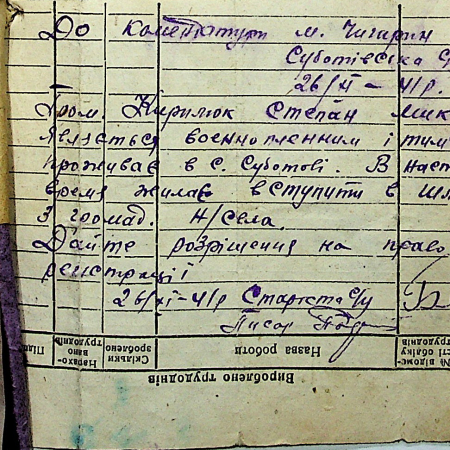 До коментатури м. Чигирин
Суботівська С
26/XI – 41р.
Гром. Кирилюк Степан Мик
являється военнопленним і тим
проживає в с. Суботові. В наст
время жилає вступити в шл
З громад. Н/Села.
Дайте розрішення на право
регістрації
26/XI–41р Староста С/у
Писар
№ відомості обліку трудоднів
Назва роботи
Скільки зроблено
Нарахо-
вано
трудоднів
Підп
Вироблено трудоднів